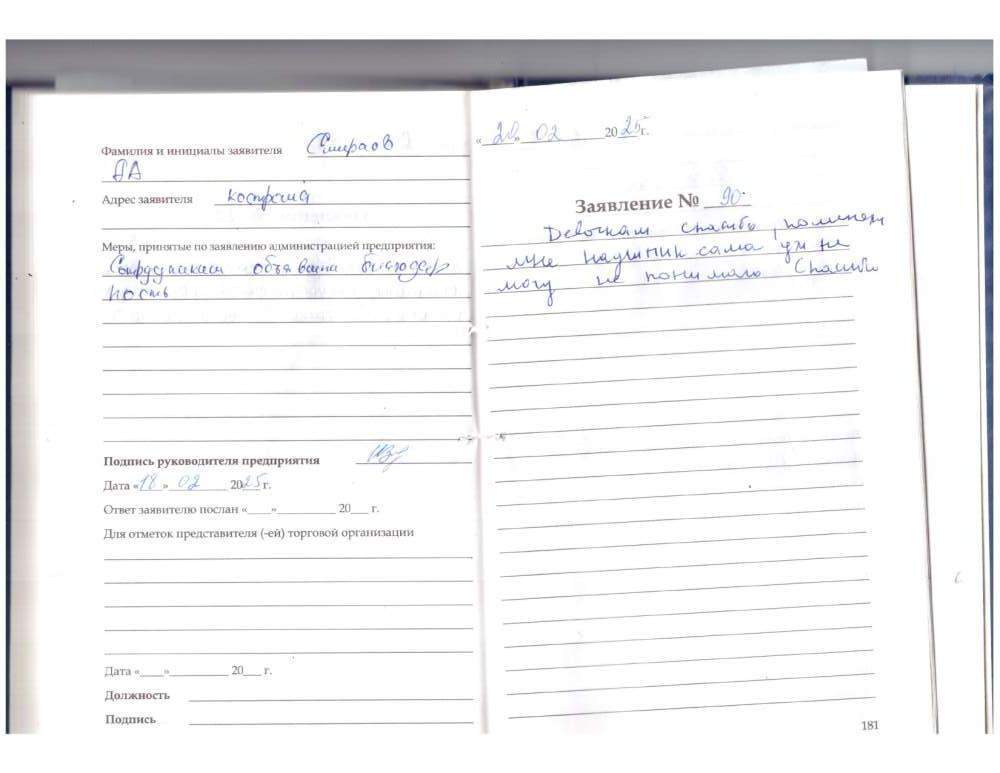 Фамилия и инициалы заявителя Смирнов
АА
Адрес заявителя Кострома
Меры, принятые по заявлению администрацией предприятия:
Сотрудникам объявлена благодар
ность
Подпись руководителя предприятия
Дата «18» 02 2025г.
Ответ заявителю послан «___»__________ 20___ г.
Для отметок представителя (-ей) торговой организации
Дата «____»__________ 20___ г.
Должность
Подпись
«20» 02 2025г.
Заявление № 90
Девочкам спасибо,
мне наушник сама уж не
могу не понимаю Спасибо
181